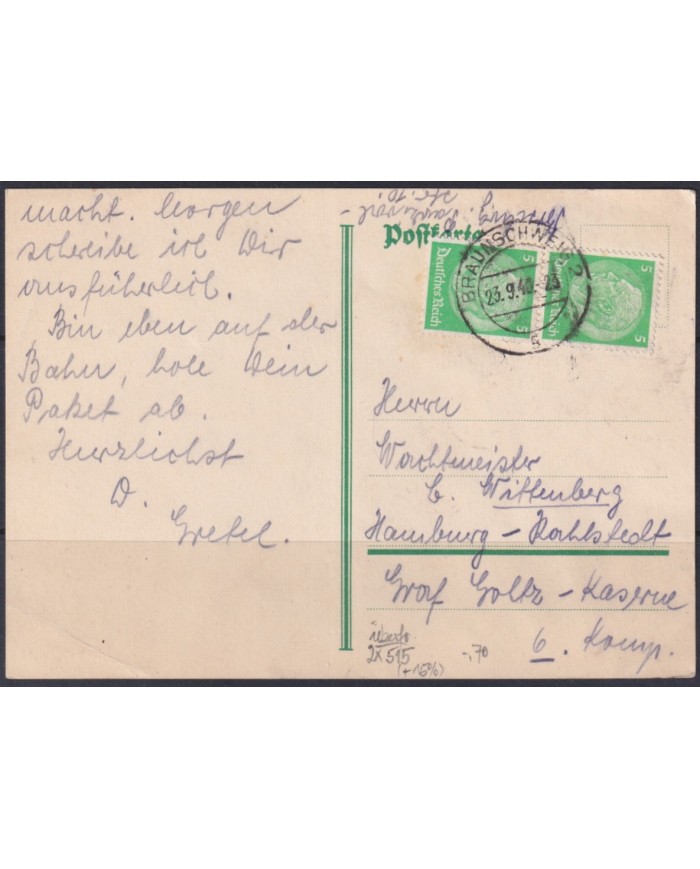 macht. Morgen
schreibe ich Dir
ausführlich.
Bin eben auf der
Bahn, hole Dein
Paket ab.
Herzlichst
D.
Gretel.
Postkarte
BRAUNSCHWEIG 2
23.9.40.-23
5
5
Deutsches Reich
5
5
Deutsches Reich
Herrn
Wachtmeister
C. Wittenberg
Hamburg - Rahlstedt
Graf Goltz - Kaserne
6. Komp.
2x515
(+15%)
-,70